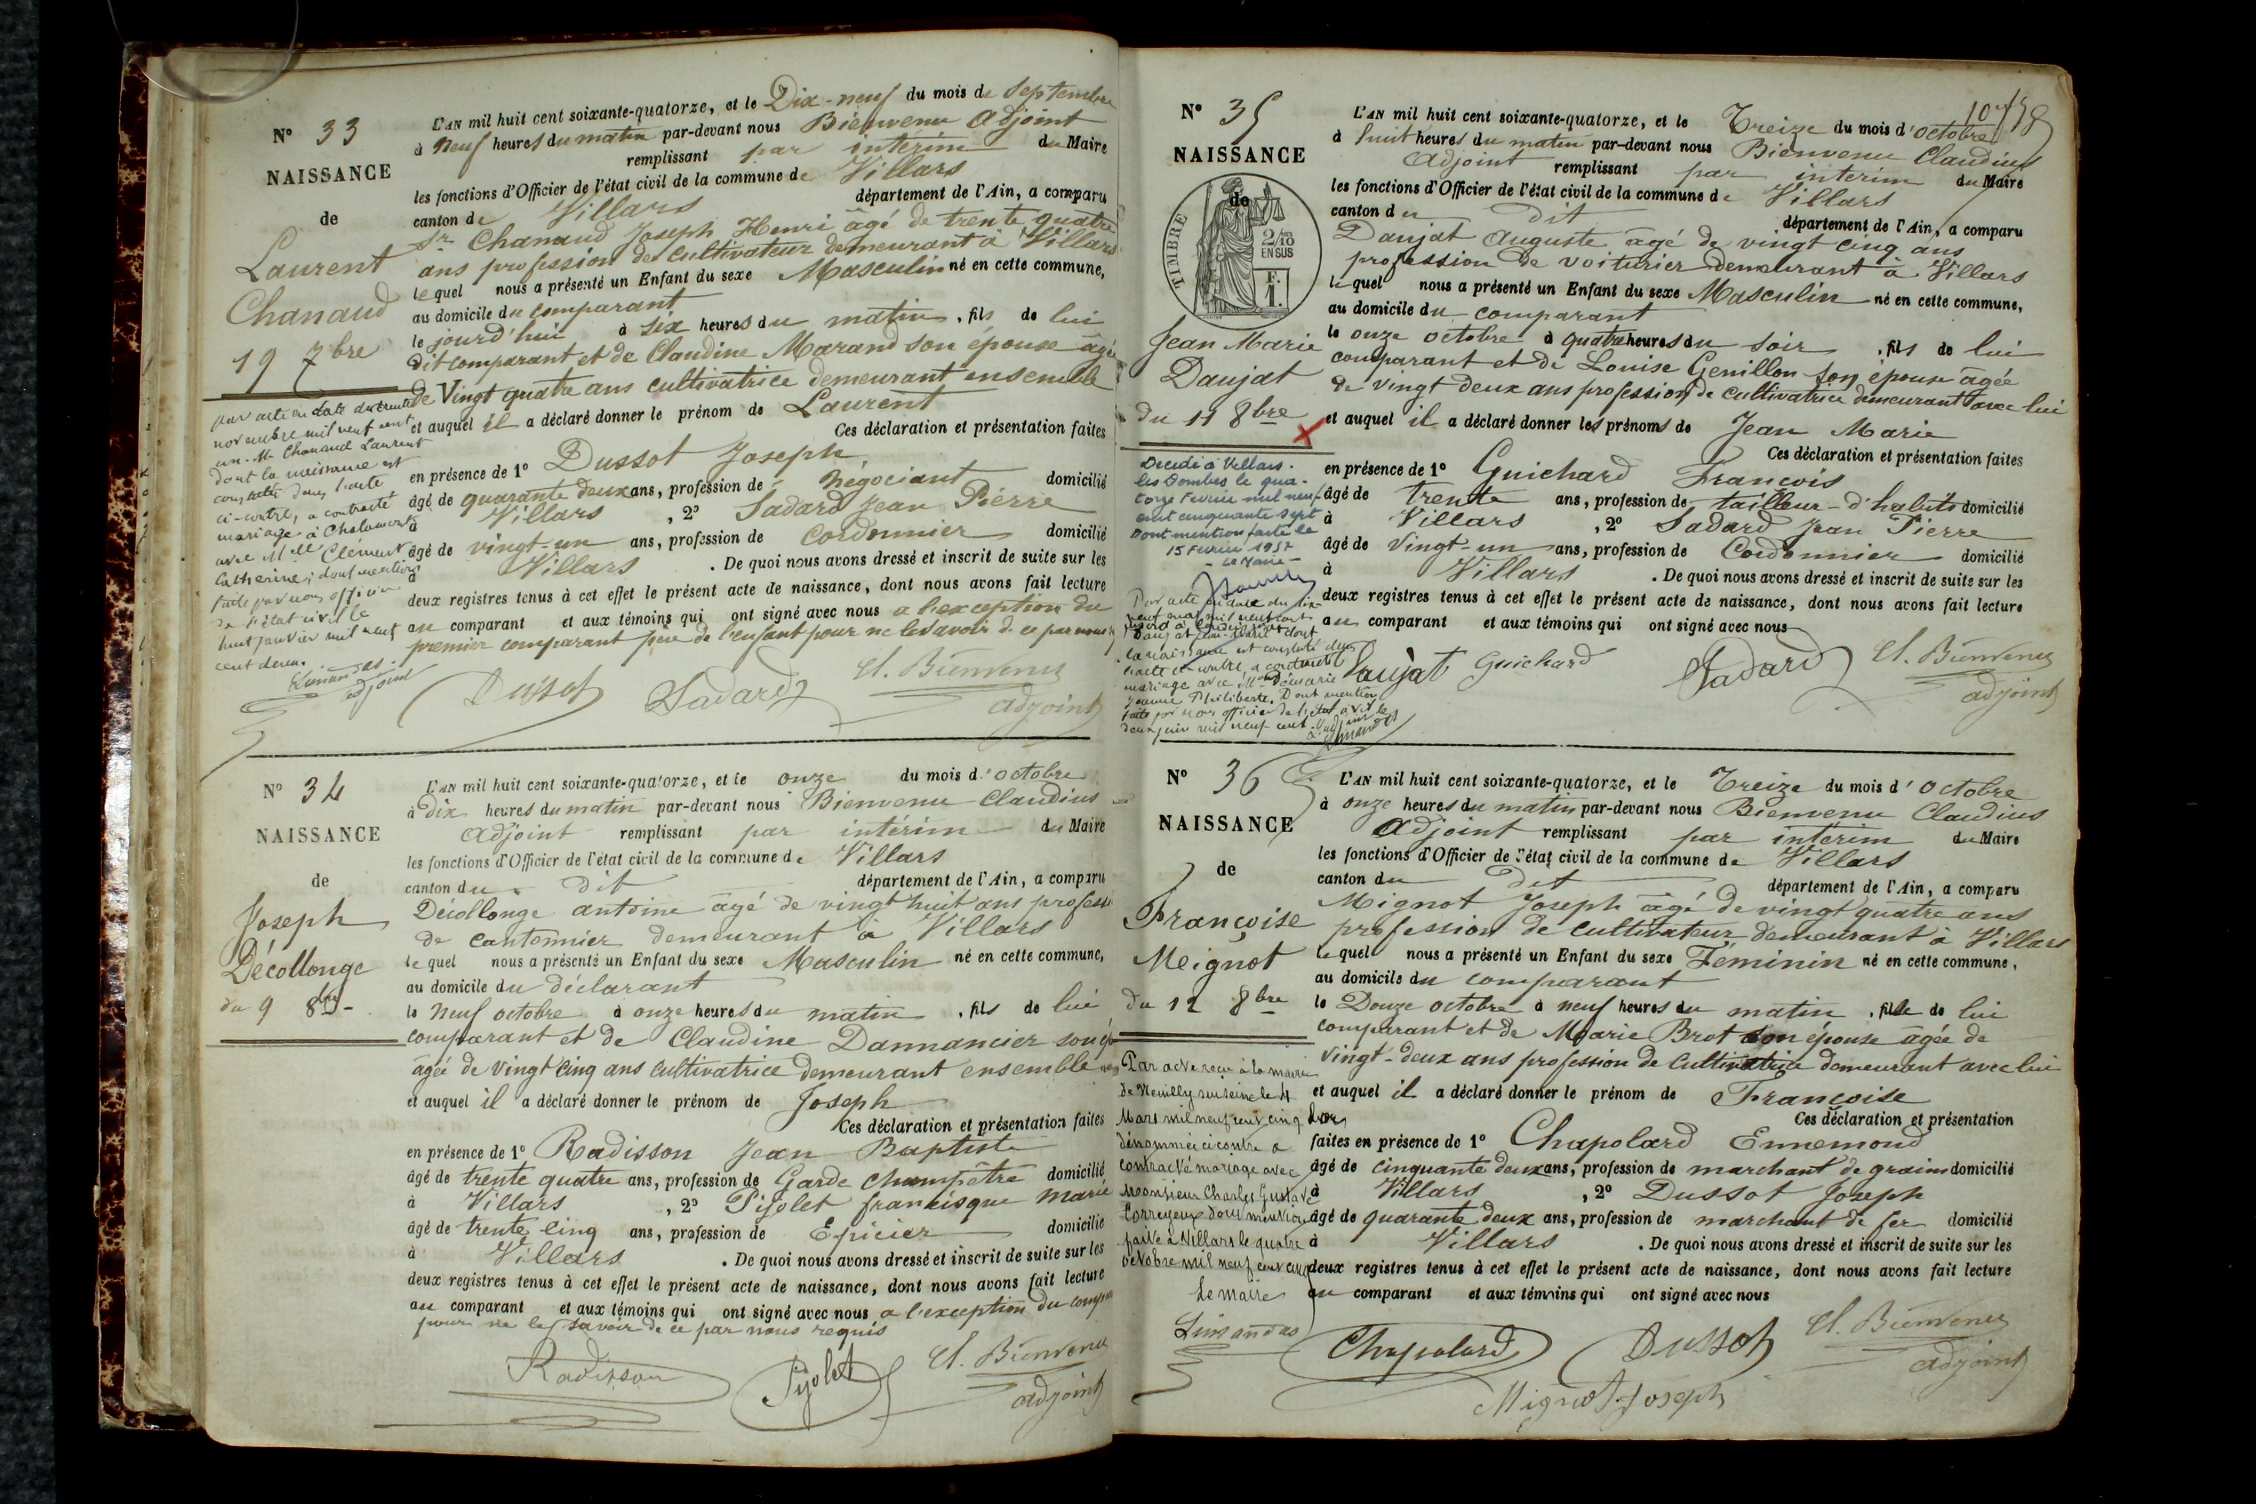 N° 33
NAISSANCE
de
Laurent
Chanaud
19 7bre
L'AN mil huit cent soixante-quatorze, et le Dix-neuf du mois de Septembre
à neuf heures du matin par-devant nous Bienvenu Adjoint
remplissant par intérim du Maire
les fonctions d'Officier de l'état civil de la commune de Villars
canton de Villars département de l'Ain, a comparu
Sr Chanaud Joseph Henri âgé de trente quatre
ans profession de cultivateur demeurant à Villars
lequel nous a présenté un Enfant du sexe Masculin né en cette commune,
au domicile du comparant
le jourd'hui à six heures du matin, fils de lui
dit comparant et de Claudine Marand son épouse âgée
de Vingt quatre ans cultivatrice demeurant ensemble
et auquel il a déclaré donner le prénom de Laurent
Ces déclaration et présentation faites
en présence de 1° Dussot Joseph
âgé de quarante deux ans, profession de Négociant domicilié
à Villars, 2° Sadard Jean Pierre
âgé de vingt-un ans, profession de Cordonnier domicilié
à Villars. De quoi nous avons dressé et inscrit de suite sur les
deux registres tenus à cet effet le présent acte de naissance, dont nous avons fait lecture
au comparant et aux témoins qui ont signé avec nous a l'exception du
premier comparant père de l'enfant pour ne le savoir de ce par nous
Par acte en date du trente
novembre mil neuf cent
un Mr Chanaud Laurent
dont la naissance est
constatée dans l'acte
ci-contre, a contracté
mariage à Chalamont
avec Mlle Clément
Catherine; dont mention
faite par nous officier
de l'état civil le
huit janvier mil neuf
cent deux.
adjoint
Dussot Sadard Cl. Bienvenu
adjoint
N° 34
NAISSANCE
de
Joseph
Décollonge
du 9 8bre
L'AN mil huit cent soixante-quatorze, et le onze du mois d'octobre
à dix heures du matin par-devant nous Bienvenu Claudius
Adjoint remplissant par intérim du Maire
les fonctions d'Officier de l'état civil de la commune de Villars
canton du dit département de l'Ain, a comparu
Décollonge antoine âgé de vingt huit ans profess
de cantonnier demeurant à Villars
lequel nous a présenté un Enfant du sexe Masculin né en cette commune,
au domicile du déclarant
le neuf octobre à onze heures du matin, fils de lui
comparant et de Claudine Dannancier son ép
âgée de vingt cinq ans cultivatrice demeurant ensemble
et auquel il a déclaré donner le prénom de Joseph
Ces déclaration et présentation faites
en présence de 1° Radisson Jean Baptiste
âgé de trente quatre ans, profession de Garde Champêtre domicilié
à Villars, 2° Pijolet francisque Marie
âgé de trente cinq ans, profession de Épicier domicilié
à Villars. De quoi nous avons dressé et inscrit de suite sur les
deux registres tenus à cet effet le présent acte de naissance, dont nous avons fait lecture
au comparant et aux témoins qui ont signé avec nous a l'exception du compa
pour ne le savoir de ce par nous requis
Radisson Pijolet Cl. Bienvenu
adjoint
N° 35
NAISSANCE
de
TIMBRE
2/10
EN SUS
F.
1.
Jean Marie
Daujat
du 11 8bre
L'AN mil huit cent soixante-quatorze, et le Treize du mois d'octobre
à huit heures du matin par-devant nous Bienvenu Claudius
Adjoint remplissant par interim du Maire
les fonctions d'Officier de l'état civil de la commune de Villars
canton du dit département de l'Ain, a comparu
Daujat Auguste âgé de vingt cinq ans
profession de voiturier demeurant à Villars
lequel nous a présenté un Enfant du sexe Masculin né en cette commune,
au domicile du comparant
le onze octobre à quatre heures du soir, fils de lui
comparant et de Louise Genillon son épouse âgée
de vingt deux ans profession de cultivatrice demeurant avec lui
et auquel il a déclaré donner les prénoms de Jean Marie
Ces déclaration et présentation faites
en présence de 1° Guichard François
âgé de trente ans, profession de tailleur-d'habits domicilié
à Villars, 2° Sadard Jean Pierre
âgé de Vingt-un ans, profession de Cordonnier domicilié
à Villars. De quoi nous avons dressé et inscrit de suite sur les
deux registres tenus à cet effet le présent acte de naissance, dont nous avons fait lecture
au comparant et aux témoins qui ont signé avec nous
Décédé à Villars-
les Dombes le qua-
torze Février mil neuf
cent cinquante sept
Dont mention faite le
15 Février 1957
- Le Maire -
Par acte en date du dix-
neuf mai mil neuf cent
Daujat Jean-Marie dont
la naissance est constatée dans
l'acte ci-contre, a contracté
mariage avec Mlle
Jeanne Philiberte. Dont mention
faite par nous officier de l'état civil le
deux juin mil neuf cent.
Daujat Guichard Sadard Cl. Bienvenu
adjoint
N° 36
NAISSANCE
de
Françoise
Meignot
du 12 8bre
L'AN mil huit cent soixante-quatorze, et le Treize du mois d'octobre
à onze heures du matin par-devant nous Bienvenu Claudius
Adjoint remplissant par intérim du Maire
les fonctions d'Officier de l'état civil de la commune de Villars
canton du dit département de l'Ain, a comparu
Mignot Joseph âgé de vingt quatre ans
profession de cultivateur demeurant à Villars
lequel nous a présenté un Enfant du sexe Féminin né en cette commune,
au domicile du comparant
le Douze octobre à neuf heures du matin, fille de lui
comparant et de Marie Brot son épouse âgée de
vingt-deux ans profession de cultivatrice demeurant avec lui
et auquel il a déclaré donner le prénom de Françoise
Ces déclaration et présentation
faites en présence de 1° Chapolard Ennemond
âgé de cinquante deux ans, profession de marchant de grains domicilié
à Villars, 2° Dussot Joseph
âgé de quarante deux ans, profession de marchant de fer domicilié
à Villars. De quoi nous avons dressé et inscrit de suite sur les
deux registres tenus à cet effet le présent acte de naissance, dont nous avons fait lecture
au comparant et aux témoins qui ont signé avec nous
Par acte reçu à la mairie
de Neuilly sur seine le 4
Mars mil neuf cent cinq
dénommée ci contre a
contracté mariage avec
Monsieur Charles Gustave
Correyeux dont mention
faite à Villars le quatre
octobre mil neuf cent cinq
Le maire
Limandas
Chapolard Dussot Cl. Bienvenu
adjoint
Mignot Joseph